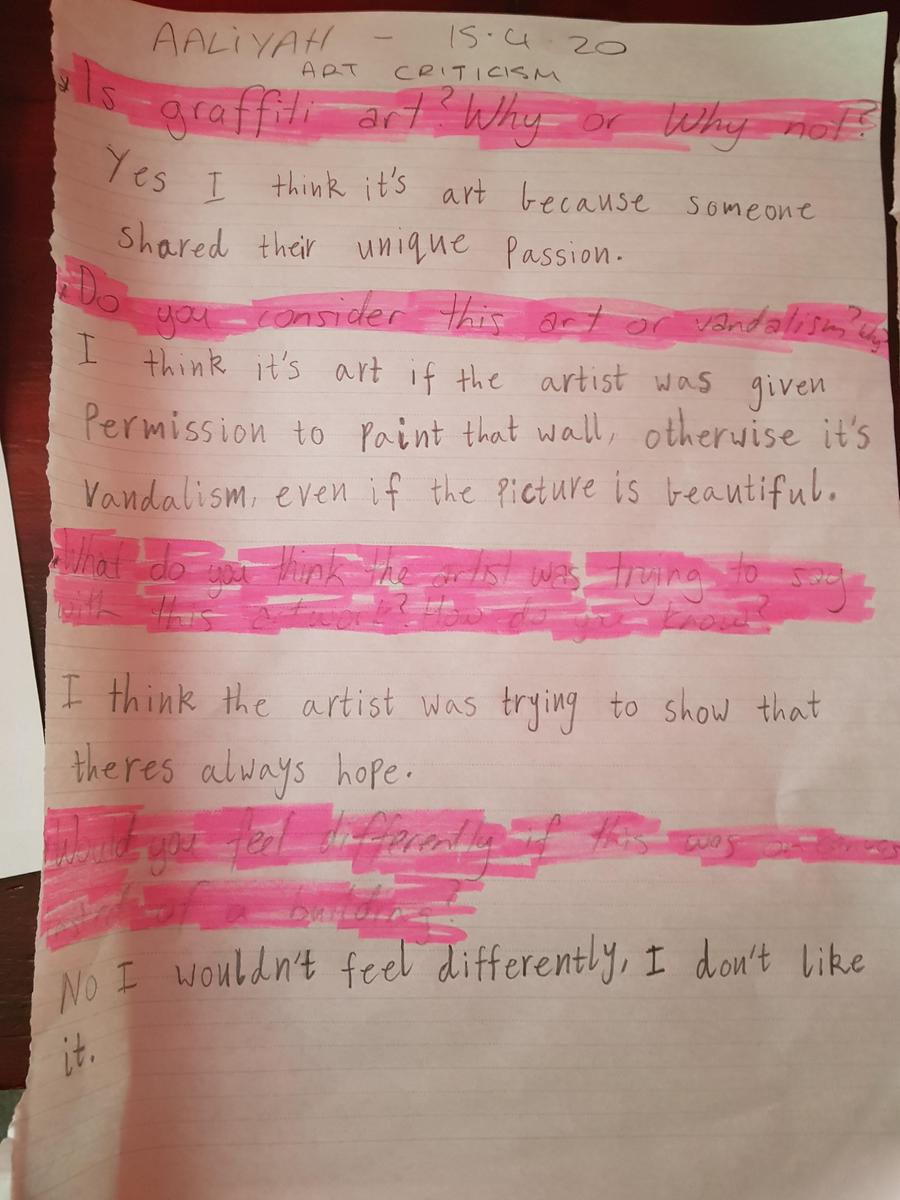 AALIYAH - 15.4.20
ART CRITICISM
Is graffiti art? Why or Why not?
Yes I think it's art because someone
shared their unique Passion.
Do you consider this art or vandalism? Why?
I think it's art if the artist was given
Permission to paint that wall, otherwise it's
vandalism, even if the Picture is beautiful.
What do you think the artist was trying to say
with this artwork? How do you know?
I think the artist was trying to show that
theres always hope.
Would you feel differently if this was on canvas
of a building?
No I wouldn't feel differently, I don't like
it.